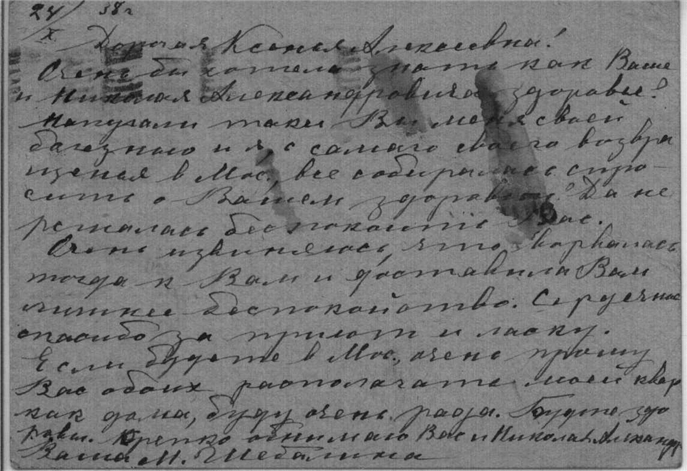 24/X 38 г
Дорогая Ксенья Алексеевна!
Очень бы хотела знать как Ваше
и Николая Александровича здоровье?
Напугали таки Вы меня своей
болезнью и я, с самаго своего возвра
щенья в Мос. все собиралась спро-
сить о Вашем здоровьи. Да не
решалась беспокоить Вас.
Очень извиняюсь, что ворвалась
тогда к Вам и доставила Вам
лишнее беспокойство. Сердечное
спасибо за приют и ласку.
Если будете в Мос., очень прошу
Вас обоих располагать моей квар
как дома, буду очень рада. Будте здо
ровы. Крепко обнимаю Вас и Николая Александр
Ваша М. Шебалина